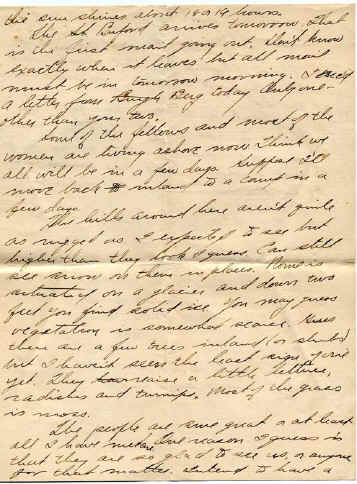 the sun shines about 18 or 19 hours.
The St Buford arrives tomorrow. That
is the first mail going out. Don't know
exactly when it leaves but all mail
must be in tomorrow morning. I rec'd
a letter from today Only one
other than yours, too.
Some of the fellows and most of the
women are living ashore now. Think we
all will be in a few days. Suppose I'll
move back inland to a camp in a
few days.
The hills around here aren't quite
as rugged as I expected to see but
higher than they look I guess. Can still
see snow on them in places. Nome is
situated on a glacier and down two
feet you find solid ice. You may guess
vegetation is somewhat scarce. Guess
there are a few trees inland, or shrubs
but I haven't seen the least sign of one
yet. They raise a little lettuce,
radishes and turnips. Most of the grass
is moss.
The people are sure great or at least
all I have met are. One reason I guess is
that they are so glad to see us, or anyone
for that matter. Intend to have a